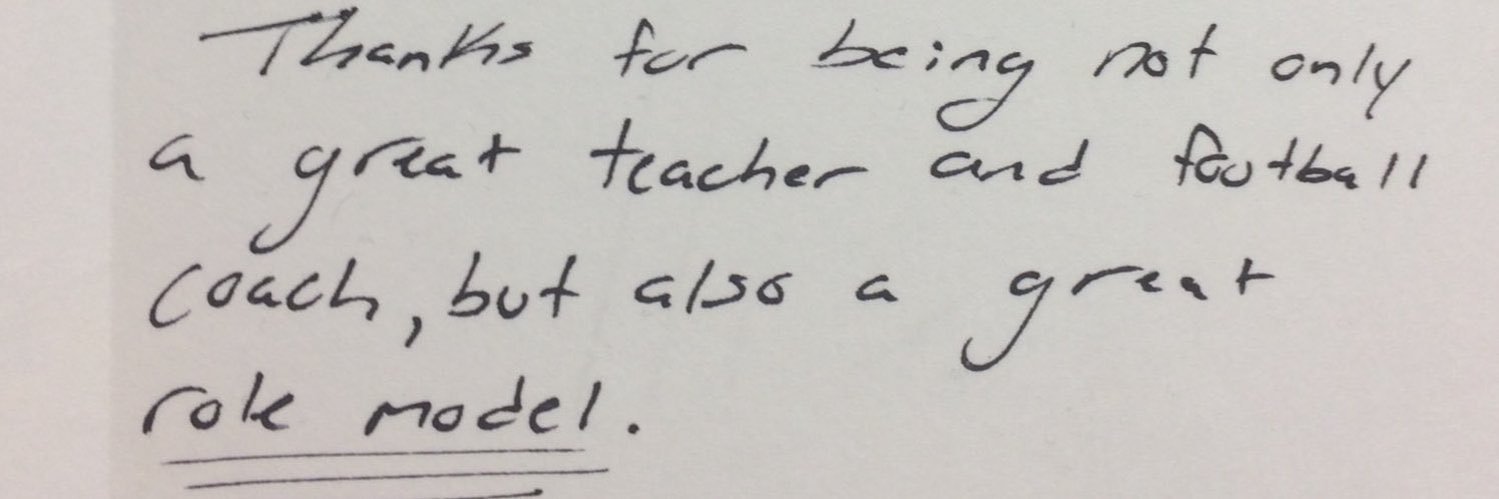 Thanks for being not only
a great teacher and football
coach, but also a great
role model.